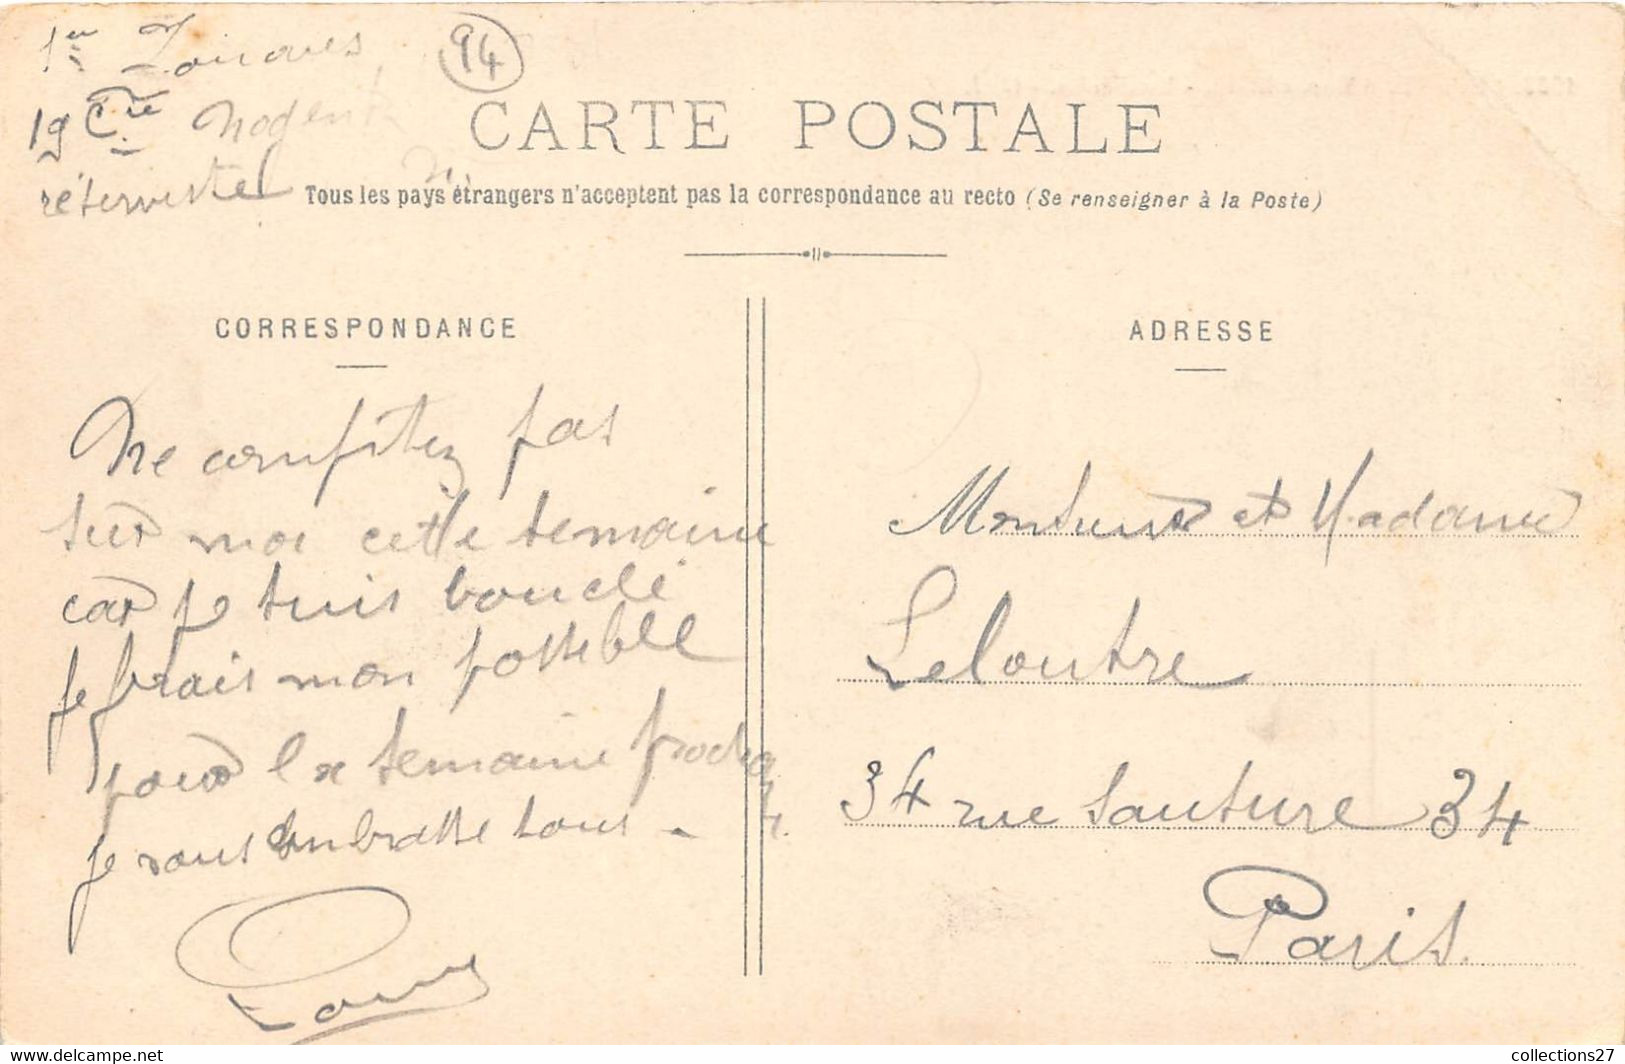 1er Zouaves
94
19 Cie Nogent
réserviste
CARTE POSTALE
Tous les pays étrangers n'acceptent pas la correspondance au recto (Se renseigner à la Poste)
CORRESPONDANCE
Ne comptez pas
sur moi cette semaine
car je suis bouclé
je frais mon possible
pour la semaine
je vous embrasse tous -
Louis
ADRESSE
Monsieur et Madame
Leloutre
34 rue Santeure 34
Paris.
collections27